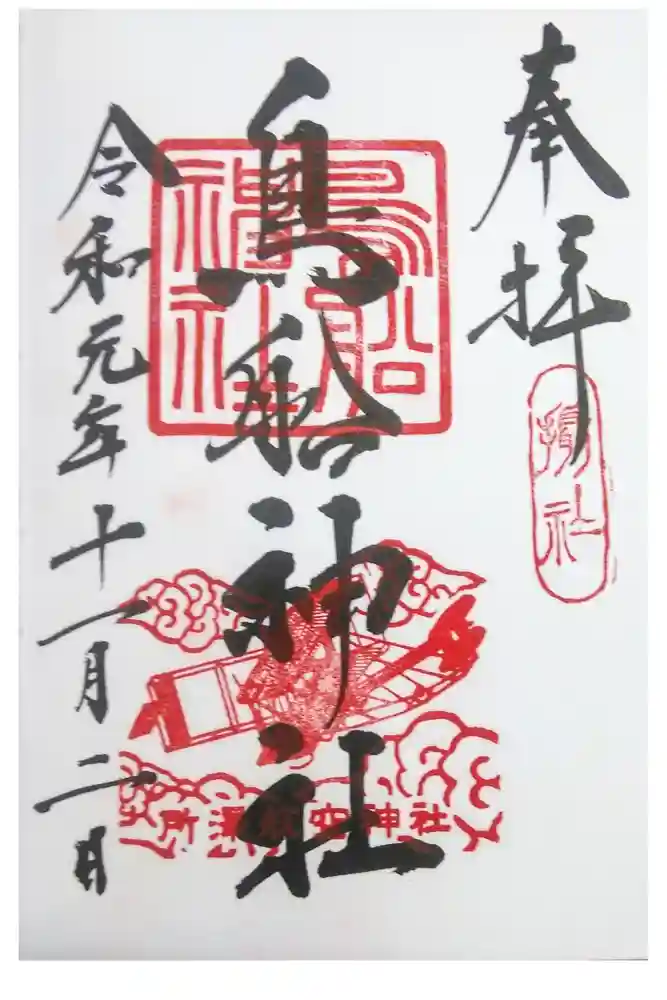 奉拝
攝社
鳥船神社
鳥船
神社
所澤航空神社
令和元年十一月二日